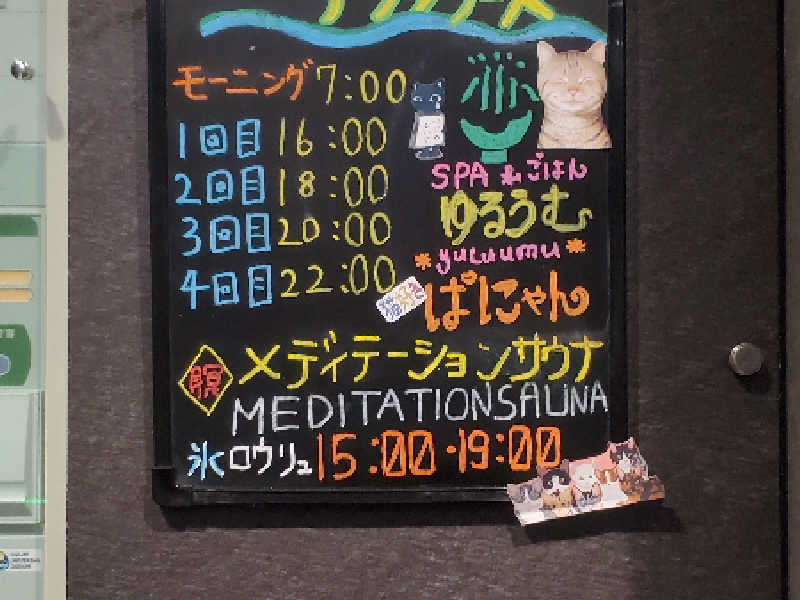 モーニング 7:00
1回目 16:00
2回目 18:00
3回目 20:00
4回目 22:00
SPA &ごはん
ゆるうむ
yuluumu
猫好き
ぱにゃん
瞑 メディテーションサウナ
MEDITATIONSAUNA
氷ロウリュ 15:00・19:00